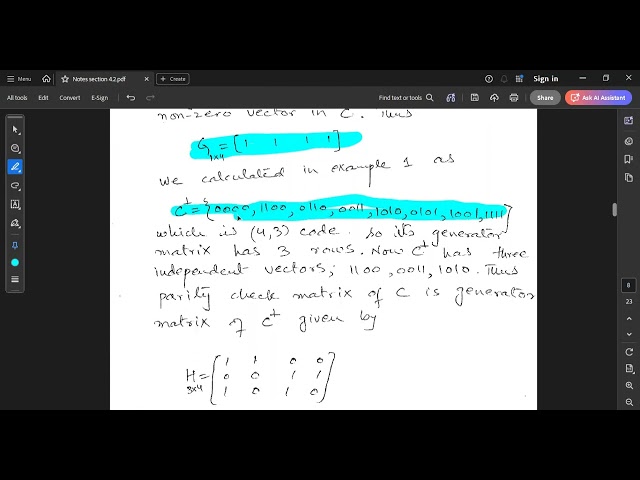 Menu
Notes section 4.2.pdf
Create
Sign in
All tools
Edit
Convert
E-Sign
Find text or tools
Share
Ask AI Assistant
non-zero vector in C. Thus
G 1x4 = [1 1 1 1]
we calculated in example 1 as
C⊥ = {0000, 1100, 0110, 0011, 1010, 0101, 1001, 1111}
which is (4,3) code. So its generator
matrix has 3 rows. Now C⊥ has three
independent vectors; 1100, 0011, 1010. Thus
parity check matrix of C is generator
matrix of C⊥ given by
H 3x4 = [1 1 0 0
0 0 1 1
1 0 1 0]
8
23